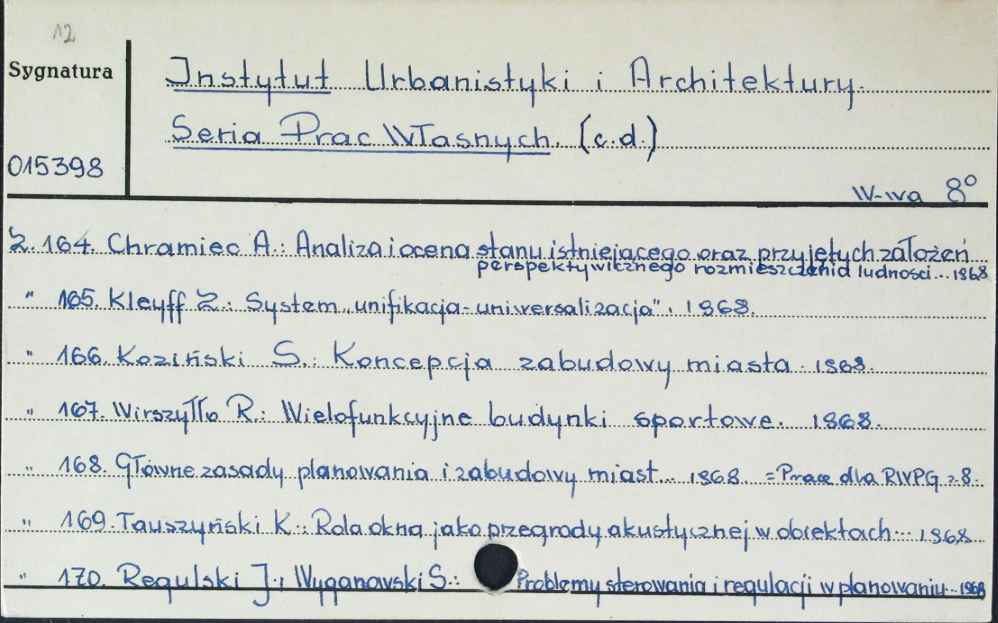 12
Sygnatura
Instytut Urbanistyki i Architektury.
Seria Prac Własnych. (c.d.)
015398
W-wa 8°
Z. 164. Chramiec A.: Analiza i ocena stanu istniejącego oraz przyjętych założeń
perspektywicznego rozmieszczenia ludności... 1968
" 165. Kleyff Z.: System "unifikacja-uniwersalizacja". 1968.
" 166. Koziński S.: Koncepcja zabudowy miasta. 1968.
" 167. Wirszyłło R.: Wielofunkcyjne budynki sportowe. 1968.
" 168. Główne zasady planowania i zabudowy miast... 1968. =Prace dla RWPG z. 8.
" 169. Tauszyński K.: Rola okna jako przegrody akustycznej w obiektach... 1968
" 170. Regulski J. i Wyganowski S.: Problemy sterowania i regulacji w planowaniu... 1968